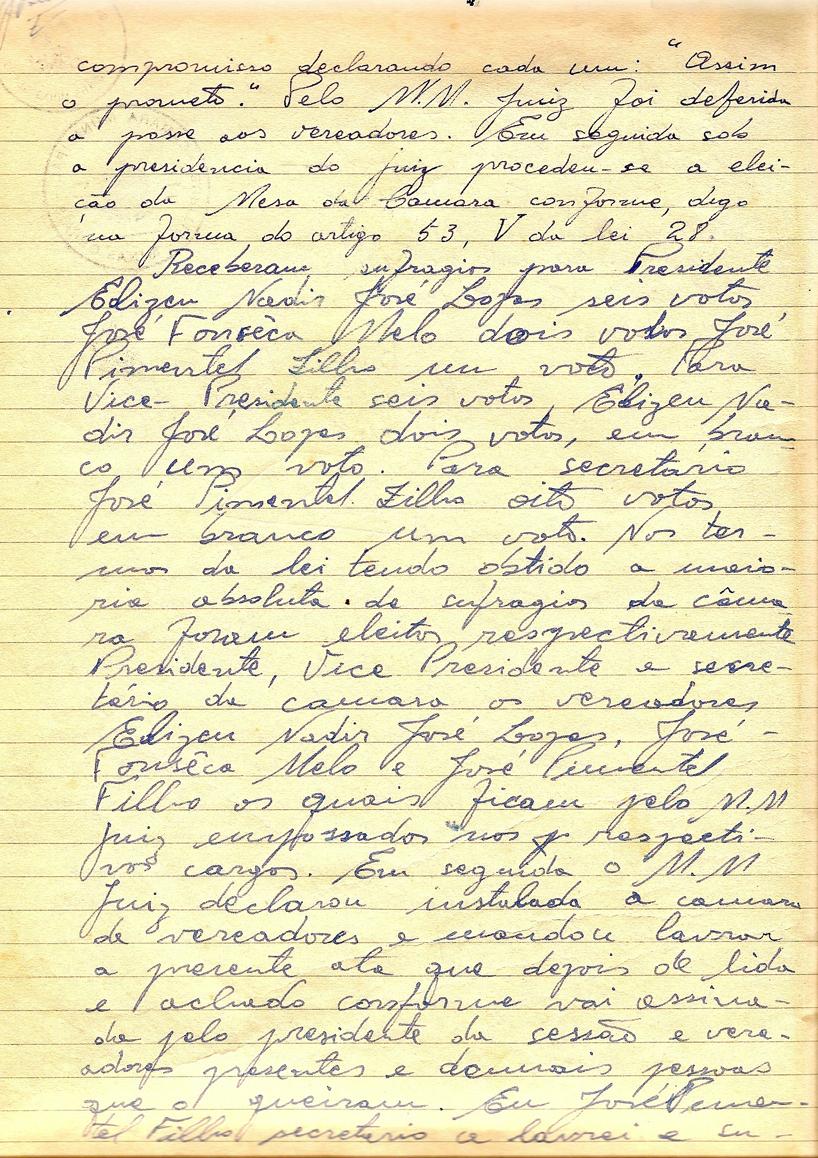 compromisso declarando cada um: "Assim
o prometo." Pelo M.M. Juiz foi deferida
a posse aos vereadores. Em seguida sob
a presidencia do juiz procedeu-se a elei-
ção da Mesa da Camara conforme, digo
na forma do artigo 53, V da lei 28.
Receberam sufragios para Presidente
Elizeu Nadir José Lopes seis votos
José Fonsêca Melo dois votos José
Pimentel Filho um voto. Para
Vice-Presidente seis votos, Elizeu Na-
dir José Lopes dois votos, em bran-
co um voto. Para secretário
José Pimentel Filho oito votos,
em branco um voto. Nos ter-
mos da lei tendo obtido a maio-
ria absoluta de sufragios da câma-
ra foram eleitos respectivamente
Presidente, Vice Presidente e secre-
tário da camara os vereadores
Elizeu Nadir José Lopes, José
Fonsêca Melo e José Pimentel
Filho os quais ficam pelo M.M
Juiz empossados nos respecti-
vos cargos. Em seguida o M.M
Juiz declarou instalada a camara
de vereadores e mandou lavrar
a presente ata que depois de lida
e achada conforme vai assina-
da pelo presidente da sessão e vere-
adores presentes e demais pessoas
que o queiram. Eu José Pimen-
tel Filho secretario a lavrei e su-